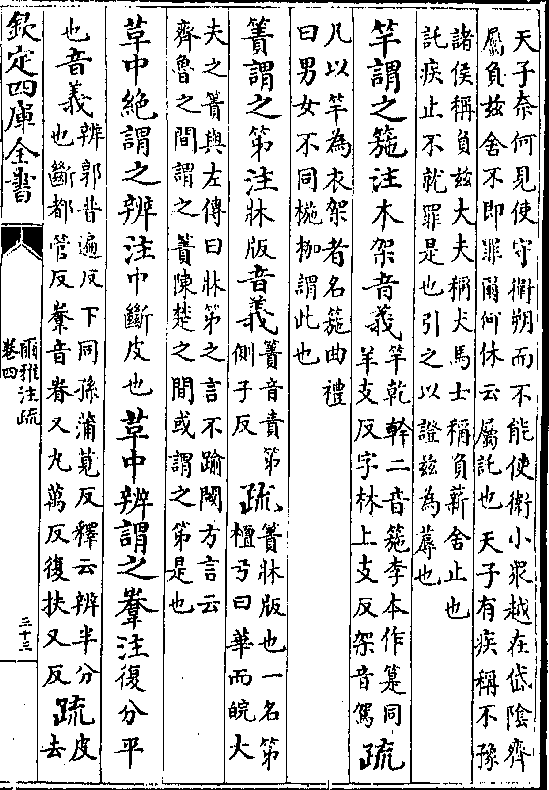 天子奈何見使守衞朔而不能使衛小眾越在岱隂齊
屬負兹舍不即罪爾何休云屬託也天子有疾稱不豫
諸侯稱負兹大夫稱犬馬士稱負薪舍止也
託疾止不就罪是也引之以證兹為蓐也
竿謂之箷注木架音義竿乾幹二音箷李本作同羊支反字林上支反架音駕疏
凡以竿為衣架者名箷曲禮
曰男女不同椸枷謂此也
簀謂之笫注牀版音義簀音責笫側子反疏簀牀版也一名笫檀弓曰華而睆大
夫之簀與左傳曰牀笫之言不踰閾方言云
齊魯之間謂之簀陳楚之間或謂之笫是也
革中絶謂之辨注中斷皮也革中辨謂之韏注復分平
也音義辨郭普遍反下同孫蒲莧反釋云辨半分也斷都管反韏音眷又九萬反復扶又反疏皮去
欽定四庫全書
爾雅注疏
卷四
三十三